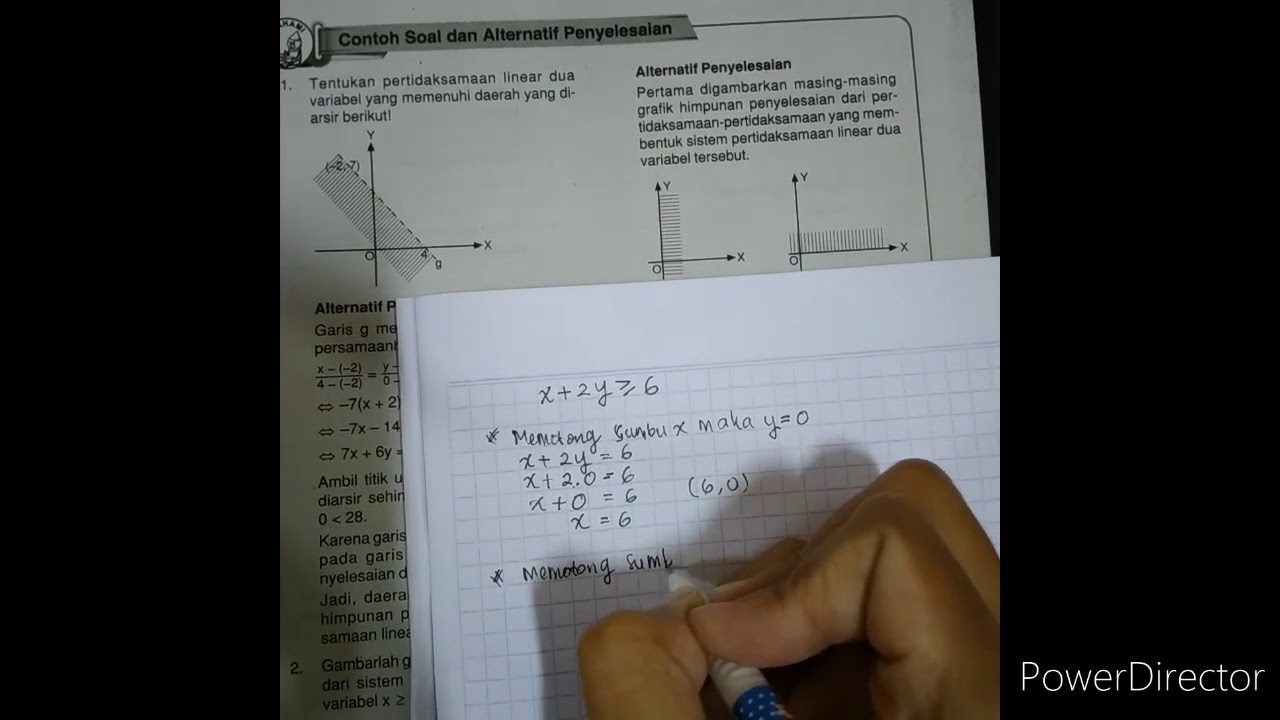 Contoh Soal dan Alternatif Penyelesaian
1. Tentukan pertidaksamaan linear dua
variabel yang memenuhi daerah yang di-
arsir berikut!
Y
(–2, 7)
O
4
X
g
Alternatif P
Garis g me
persamaan
x – (–2)
4 – (–2)
=
y –
0 –
⇔ –7(x + 2)
⇔ –7x – 14
⇔ 7x + 6y =
Ambil titik u
diarsir sehin
0 < 28.
Karena garis
pada garis
nyelesaian d
Jadi, daera
himpunan p
samaan linea
2. Gambarlah g
dari sistem
variabel x ≥
Alternatif Penyelesaian
Pertama digambarkan masing-masing
grafik himpunan penyelesaian dari per-
tidaksamaan-pertidaksamaan yang mem-
bentuk sistem pertidaksamaan linear dua
variabel tersebut.
Y
O
X
Y
O
X
x + 2y ≥ 6
* Memotong sumbu x maka y = 0
x + 2y = 6
x + 2.0 = 6
x + 0 = 6 (6,0)
x = 6
* Memotong sumb
PowerDirector